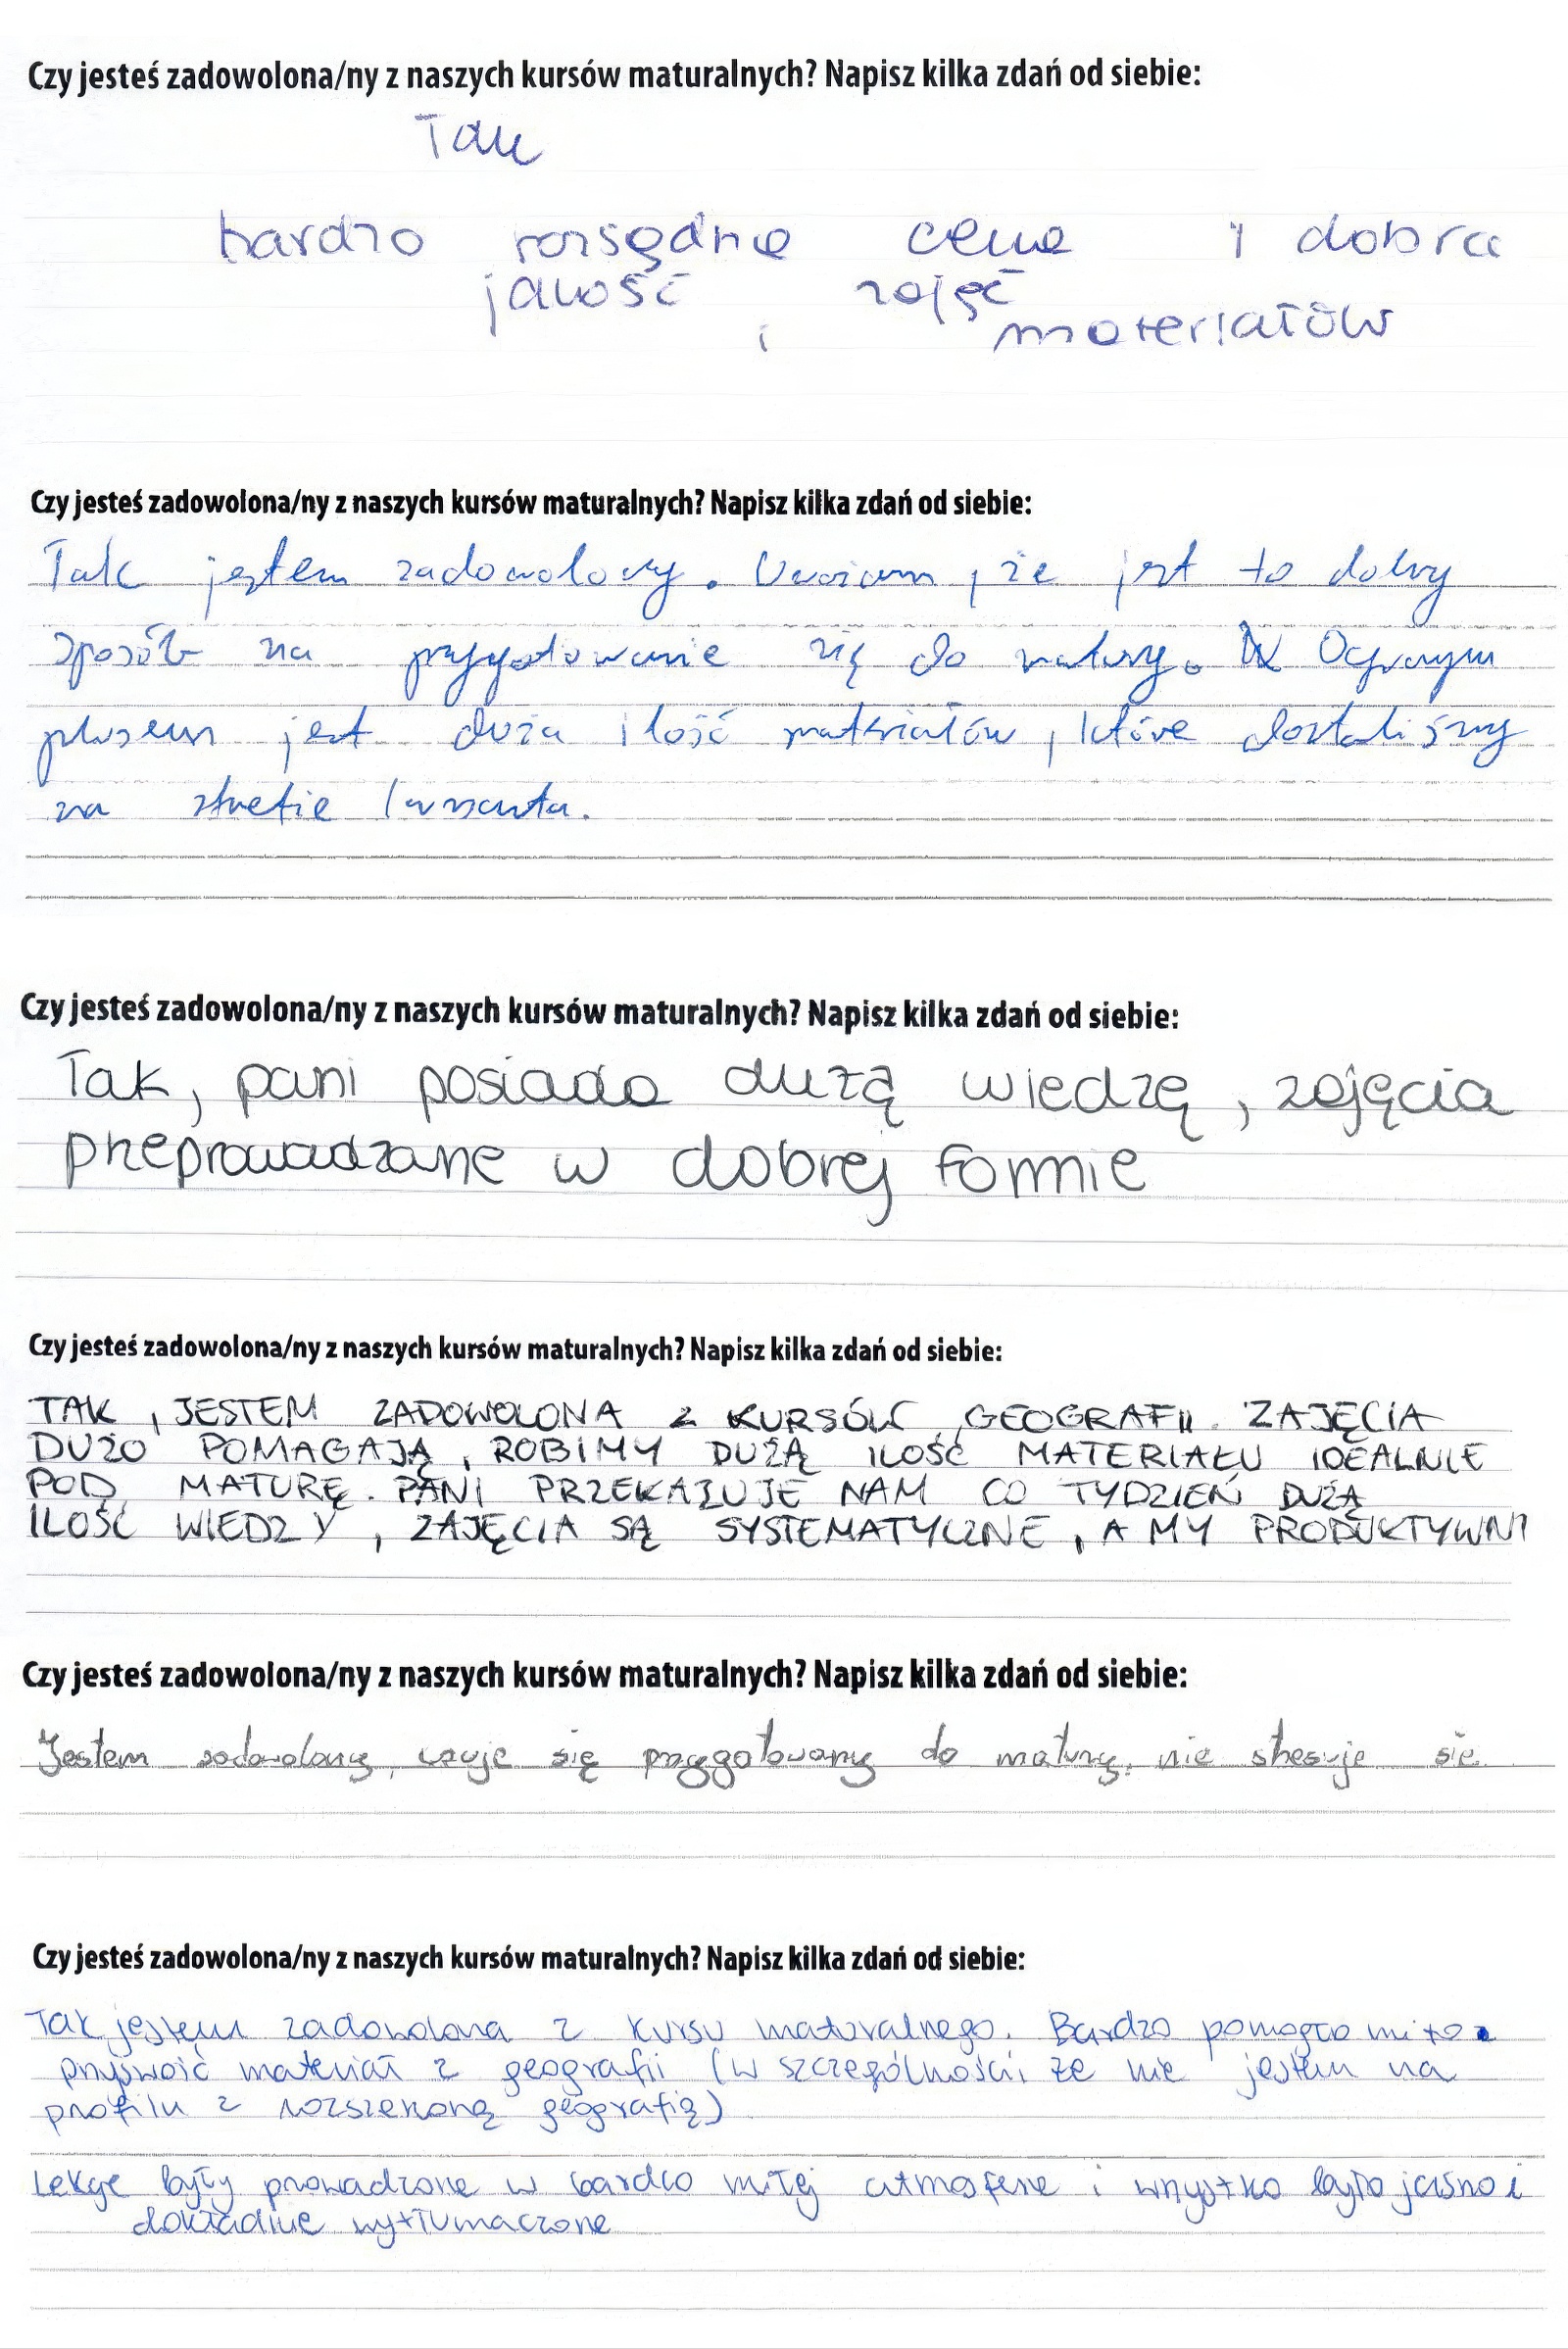 Czy jesteś zadowolona/ny z naszych kursów maturalnych? Napisz kilka zdań od siebie:
Tak
bardzo rozsądna cena i dobra
jakość zajęć
i materiałów
Czy jesteś zadowolona/ny z naszych kursów maturalnych? Napisz kilka zdań od siebie:
Tak jestem zadowolony. Uważam, że jest to dobry
sposób na przygotowanie się do matury. Ogromnym
plusem jest duża ilość materiałów, które dostaliśmy
na strefie kursanta.
Czy jesteś zadowolona/ny z naszych kursów maturalnych? Napisz kilka zdań od siebie:
Tak, pani posiada dużą wiedzę, zajęcia
przeprowadzane w dobrej formie
Czy jesteś zadowolona/ny z naszych kursów maturalnych? Napisz kilka zdań od siebie:
TAK, JESTEM ZADOWOLONA Z KURSÓW GEOGRAFII. ZAJĘCIA
DUŻO POMAGAJĄ, ROBIMY DUŻĄ ILOŚĆ MATERIAŁU IDEALNIE
POD MATURĘ. PANI PRZEKAZUJE NAM CO TYDZIEŃ DUŻĄ
ILOŚĆ WIEDZY, ZAJĘCIA SĄ SYSTEMATYCZNE, A MY PRODUKTYWNI
Czy jesteś zadowolona/ny z naszych kursów maturalnych? Napisz kilka zdań od siebie:
Jestem zadowolony, czuje się przygotowany do matury, nie stresuje sie
Czy jesteś zadowolona/ny z naszych kursów maturalnych? Napisz kilka zdań od siebie:
Tak jestem zadowolona z kursu maturalnego. Bardzo pomogło mi to
przyswoić materiał z geografii (w szczególności że nie jestem na
profilu z rozszerzoną geografią)
Lekcje były prowadzone w bardzo miłej atmosferze i wszystko było jasno i
dokładnie wytłumaczone